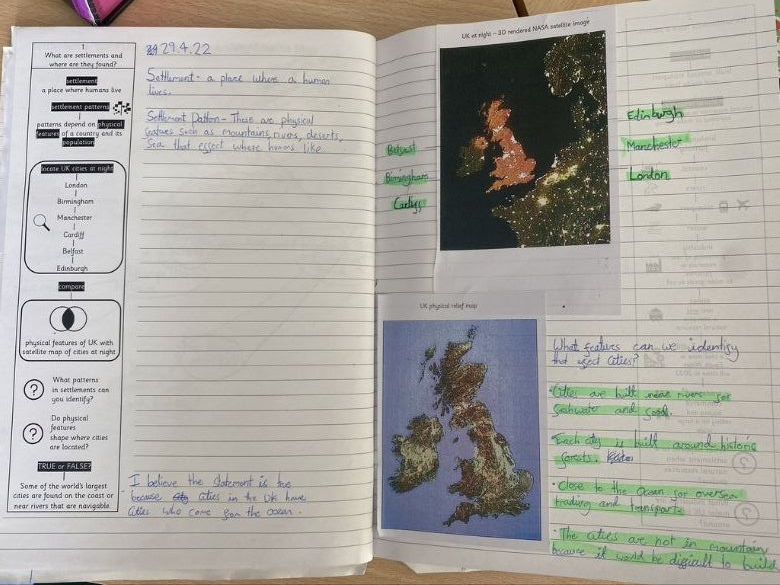 1
What are settlements and
where are they found?
settlement
a place where humans live
settlement patterns
patterns depend on physical
features of a country and its
population
locate UK cities at night
London
Birmingham
Manchester
Cardiff
Belfast
Edinburgh
compare
physical features of UK with
satellite map of cities at night
? What patterns
in settlements can
you identify?
? Do physical
features
shape where cities
are located?
TRUE or FALSE?
Some of the world's largest
cities are found on the coast or
near rivers that are navigable.
29.4.22
Settlement - a place where a human
lives.
Settlement Patton - These are physical
featues such as mountains, rivers, deserts,
Sea that effect where humans like
I believe the statement is true
because cities in the Uk have
Cities who come from the ocean.
UK at night – 3D rendered NASA satellite image
Belfast
Birmingham
Edinburgh
Manchester
London
UK physical relief map
What features can we identify
that effect cities?
• Cities are built near rivers for
and food.
• Each city is built around historic
forests.
• Close to the ocean for oversea
trading and transports
• The cities are not in mountain
because it would be difficult to build